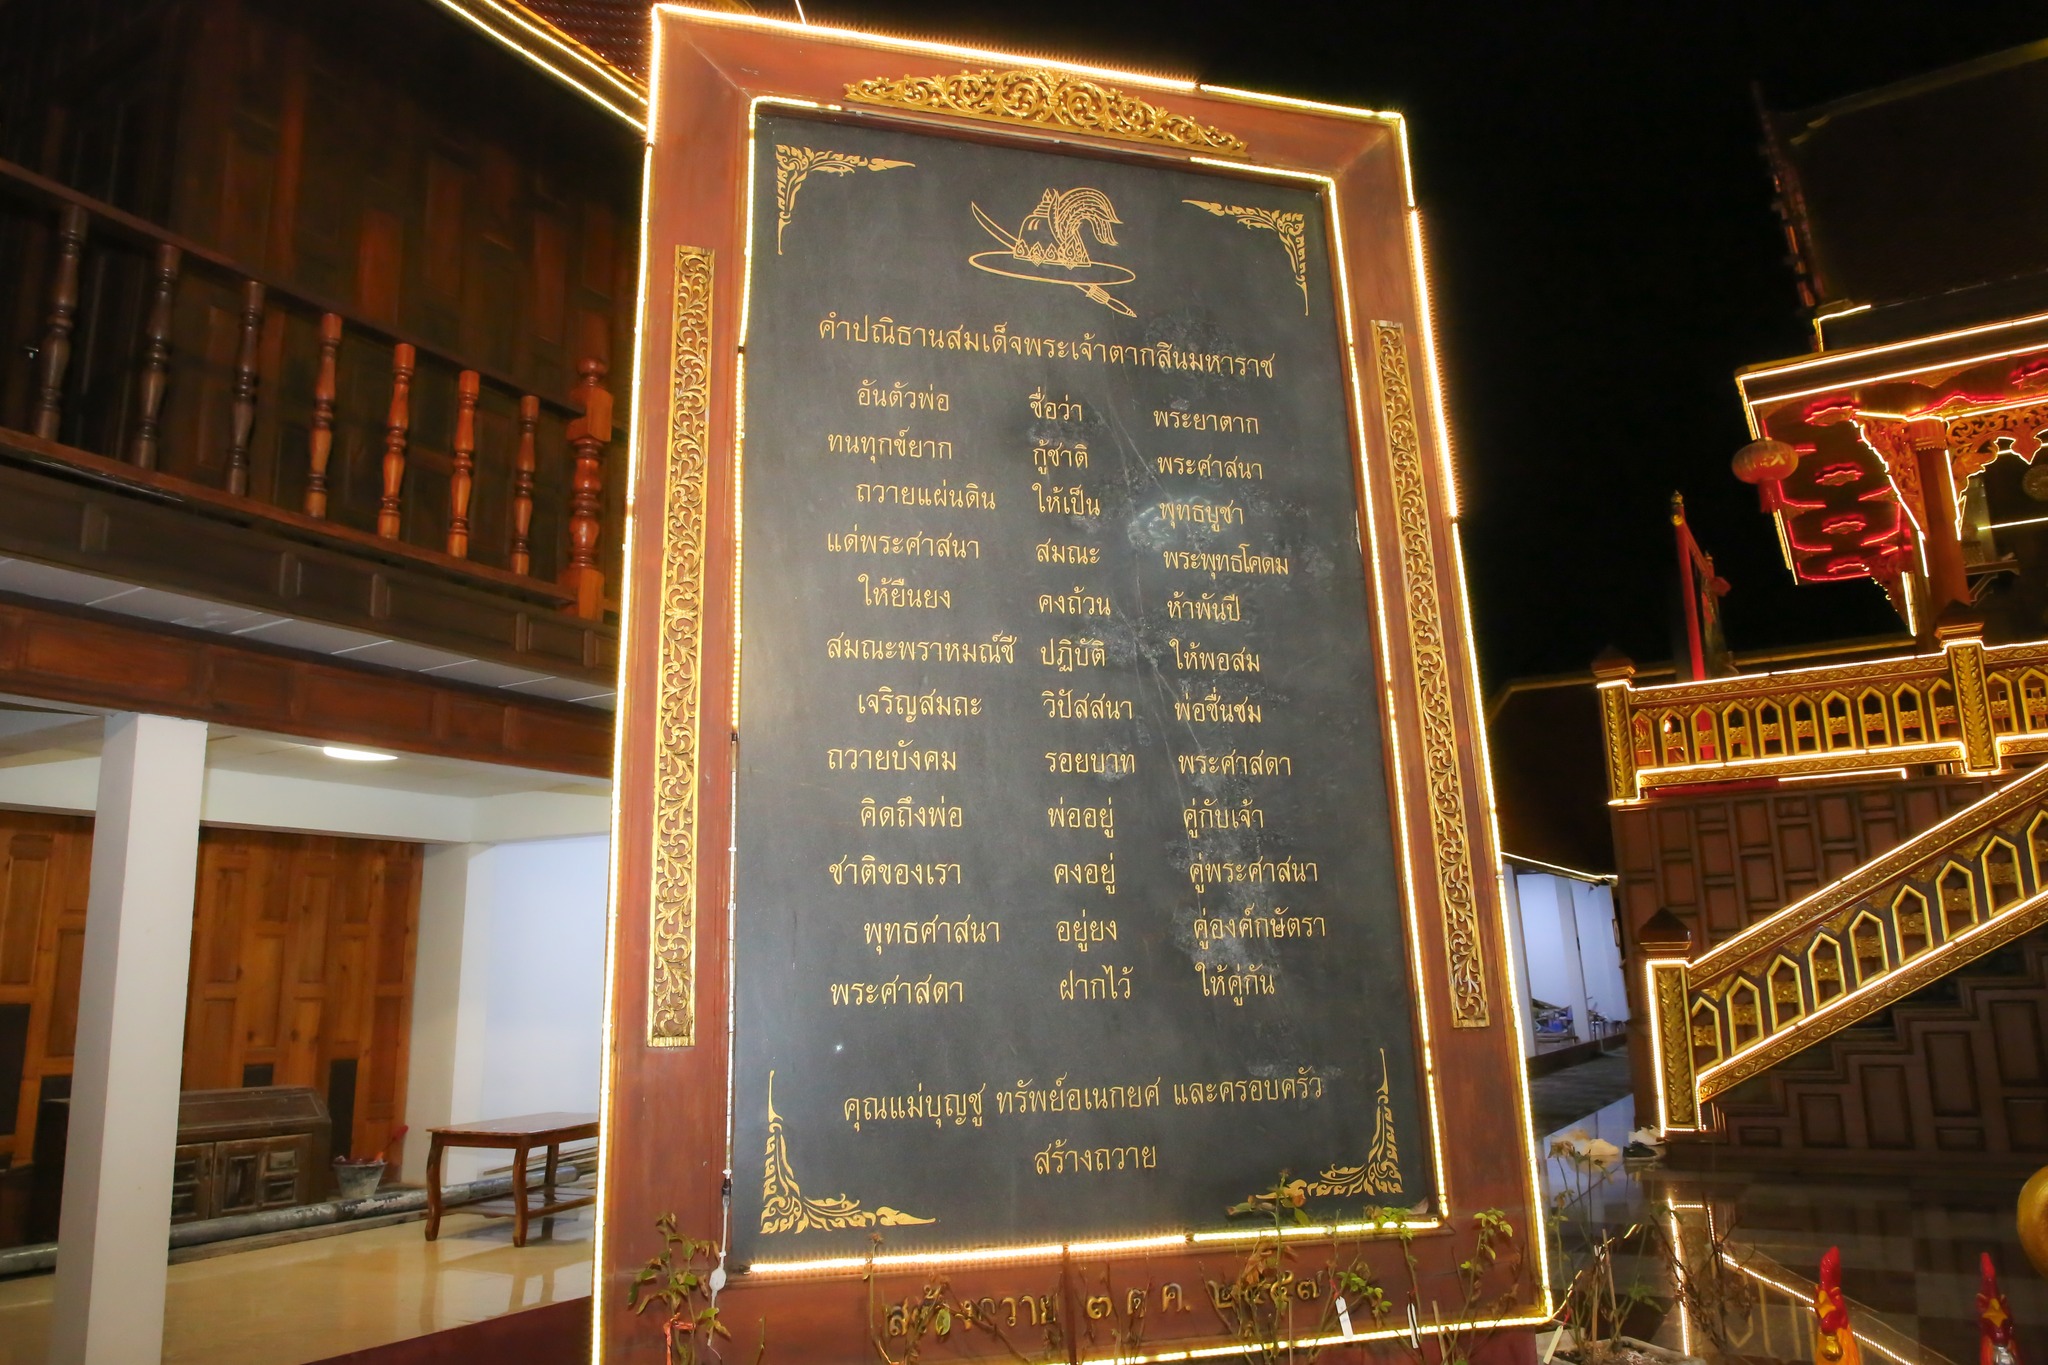 คำปณิธานสมเด็จพระเจ้าตากสินมหาราช
อันตัวพ่อ ชื่อว่า พระยาตาก
ทนทุกข์ยาก กู้ชาติ พระศาสนา
ถวายแผ่นดิน ให้เป็น พุทธบูชา
แด่พระศาสนา สมณะ พระพุทธโคดม
ให้ยืนยง คงถ้วน ห้าพันปี
สมณะพราหมณ์ชี ปฏิบัติ ให้พอสม
เจริญสมถะ วิปัสสนา พ่อชื่นชม
ถวายบังคม รอยบาท พระศาสดา
คิดถึงพ่อ พ่ออยู่ คู่กับเจ้า
ชาติของเรา คงอยู่ คู่พระศาสนา
พุทธศาสนา อยู่ยง คู่องค์กษัตรา
พระศาสดา ฝากไว้ ให้คู่กัน
คุณแม่บุญชู ทรัพย์อเนกยศ และครอบครัว
สร้างถวาย
สร้างถวาย ๓ ต ค. ๒๕๔๗